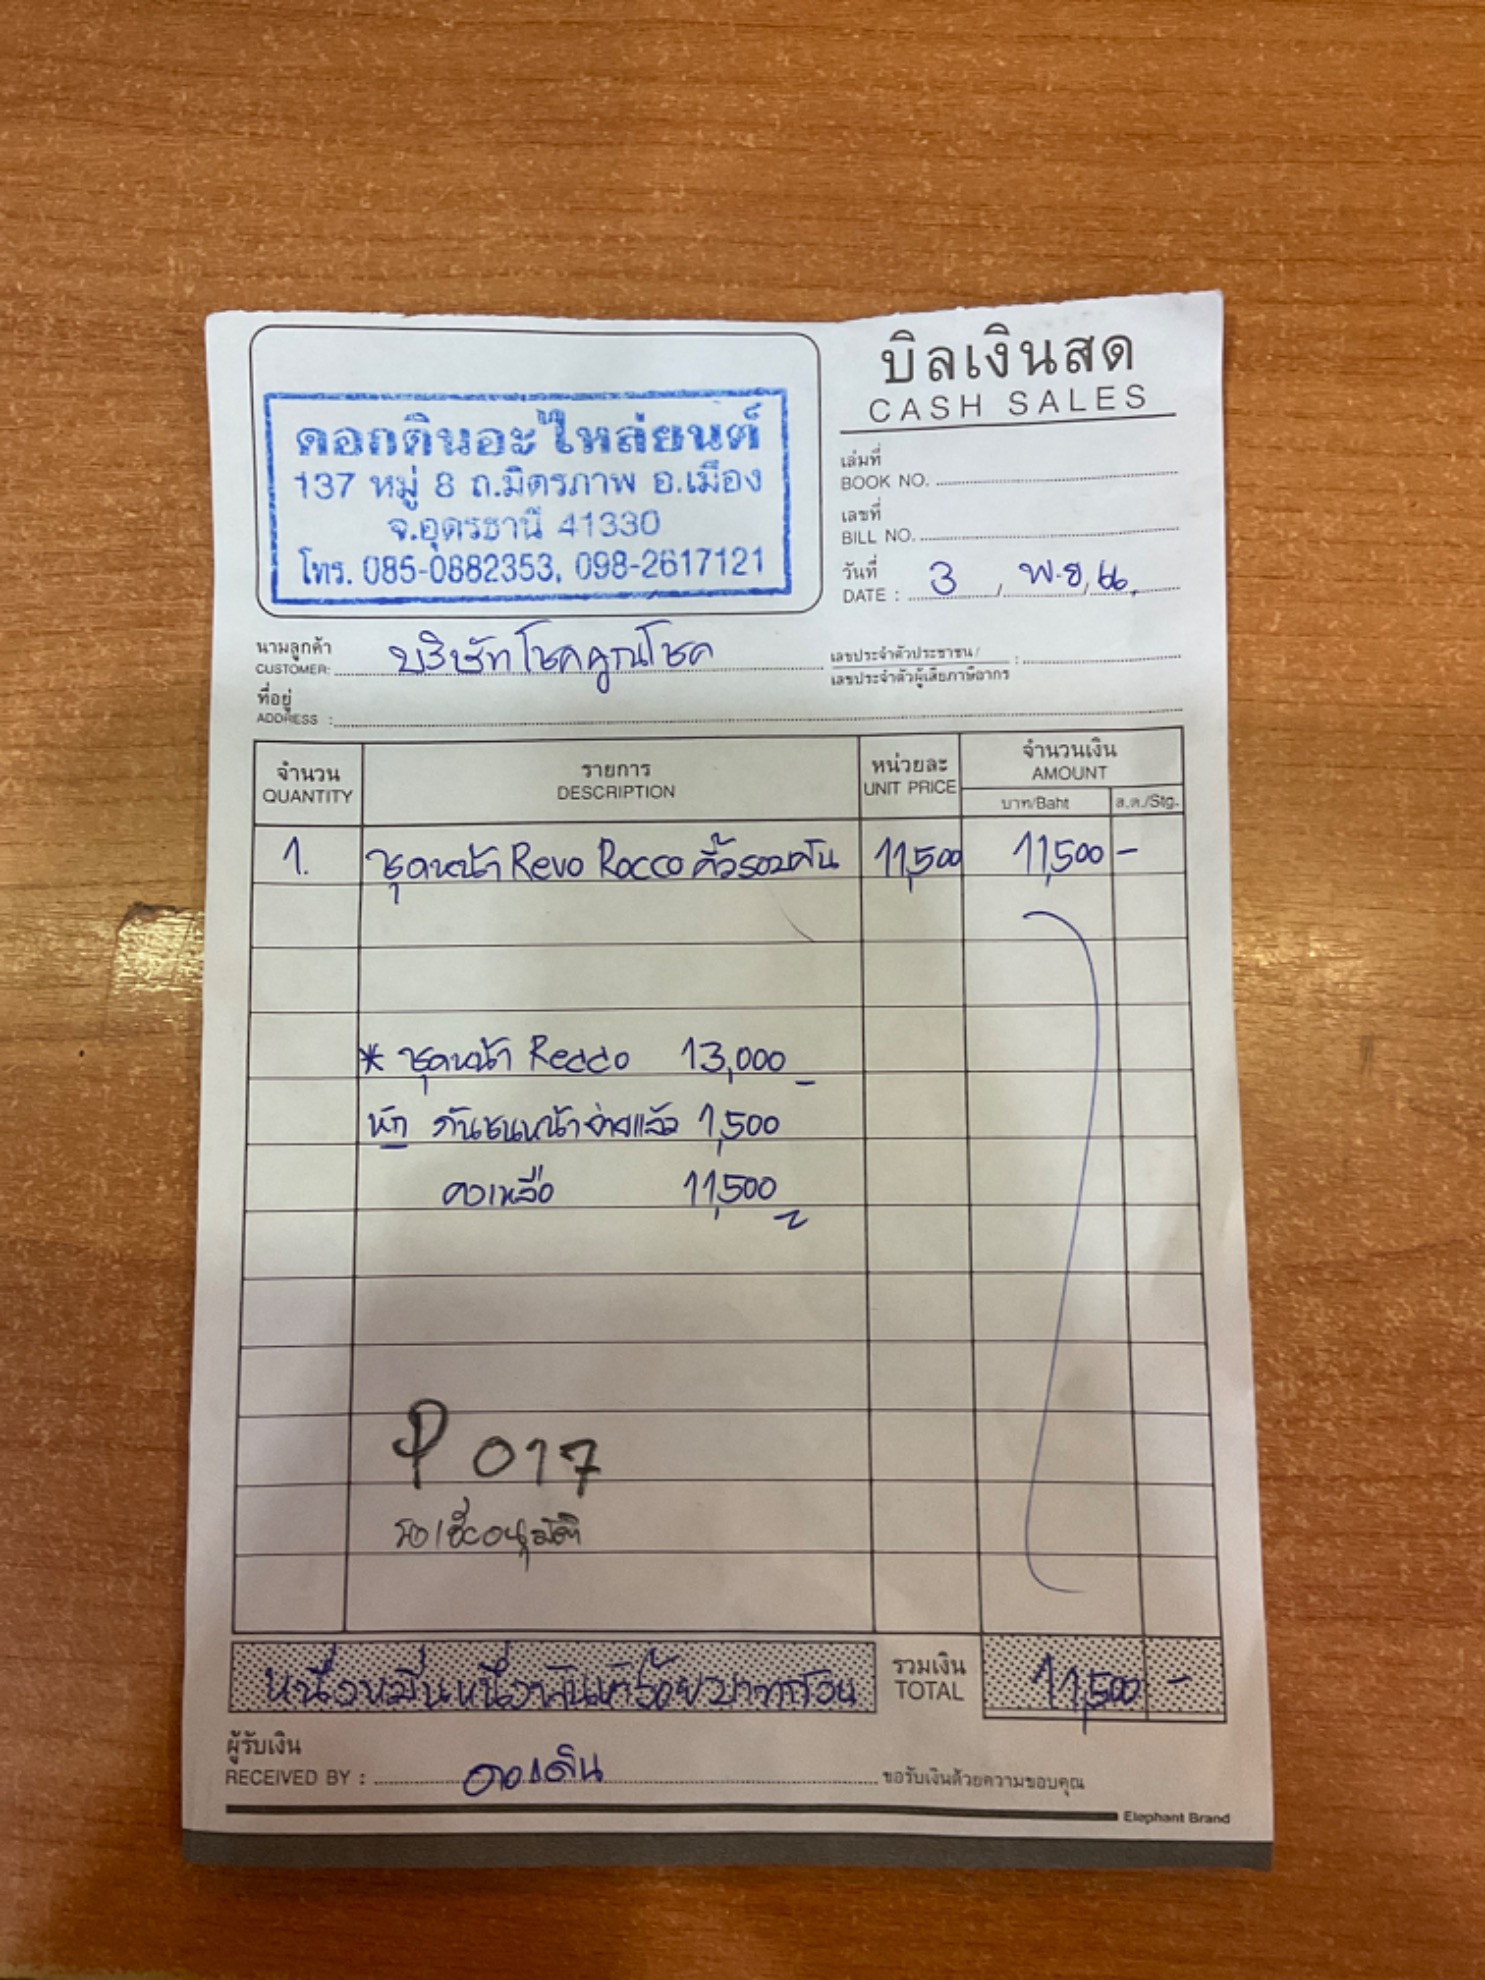 บิลเงินสด
CASH SALES
ดอกดินอะไหล่ยนต์
137 หมู่ 8 ถ.มิตรภาพ อ.เมือง
จ.อุดรธานี 41330
โทร. 085-0882353, 098-2617121
เล่มที่
BOOK NO.
เลขที่
BILL NO.
วันที่
DATE : 3 / พ.ย / 66.
นามลูกค้า
CUSTOMER: บริษัทโชคคูณโชค
เลขประจำตัวประชาชน/
เลขประจำตัวผู้เสียภาษีอากร :
ที่อยู่
ADDRESS :
จำนวน รายการ หน่วยละ จำนวนเงิน
QUANTITY DESCRIPTION UNIT PRICE AMOUNT
บาท/Baht ส.ต./Stg.
1. ชุดหน้า Revo Rocco คิ้วรอบคัน 11,500 11,500 -
* ชุดหน้า Rocco 13,000
หัก กันชนหน้าจ่ายแล้ว 1,500
คงเหลือ 11,500
P 017
รอเซ็นอนุมัติ
หนึ่งหมื่นหนึ่งพันห้าร้อยบาทถ้วน
รวมเงิน
TOTAL 11,500 -
ผู้รับเงิน
RECEIVED BY : ดอกดิน
ขอรับเงินด้วยความขอบคุณ
Elephant Brand